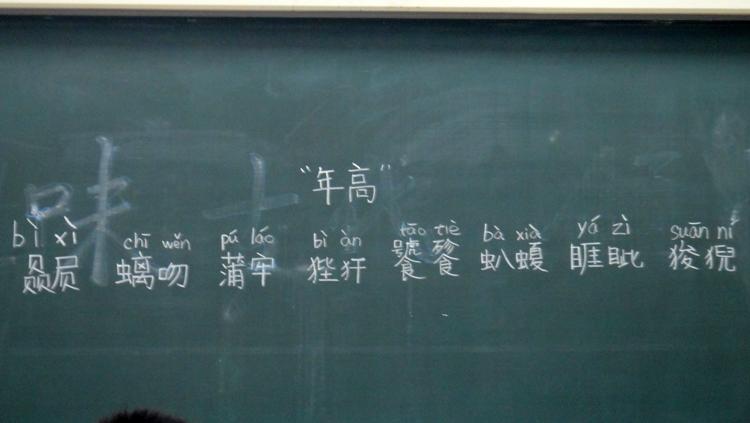 “年高”
bì xì chī wěn pú láo bì àn tāo tiè bà xià yá zì suān ní
赑屃 螭吻 蒲牢 狴犴 饕餮 𧈢𧏡 睚眦 狻猊